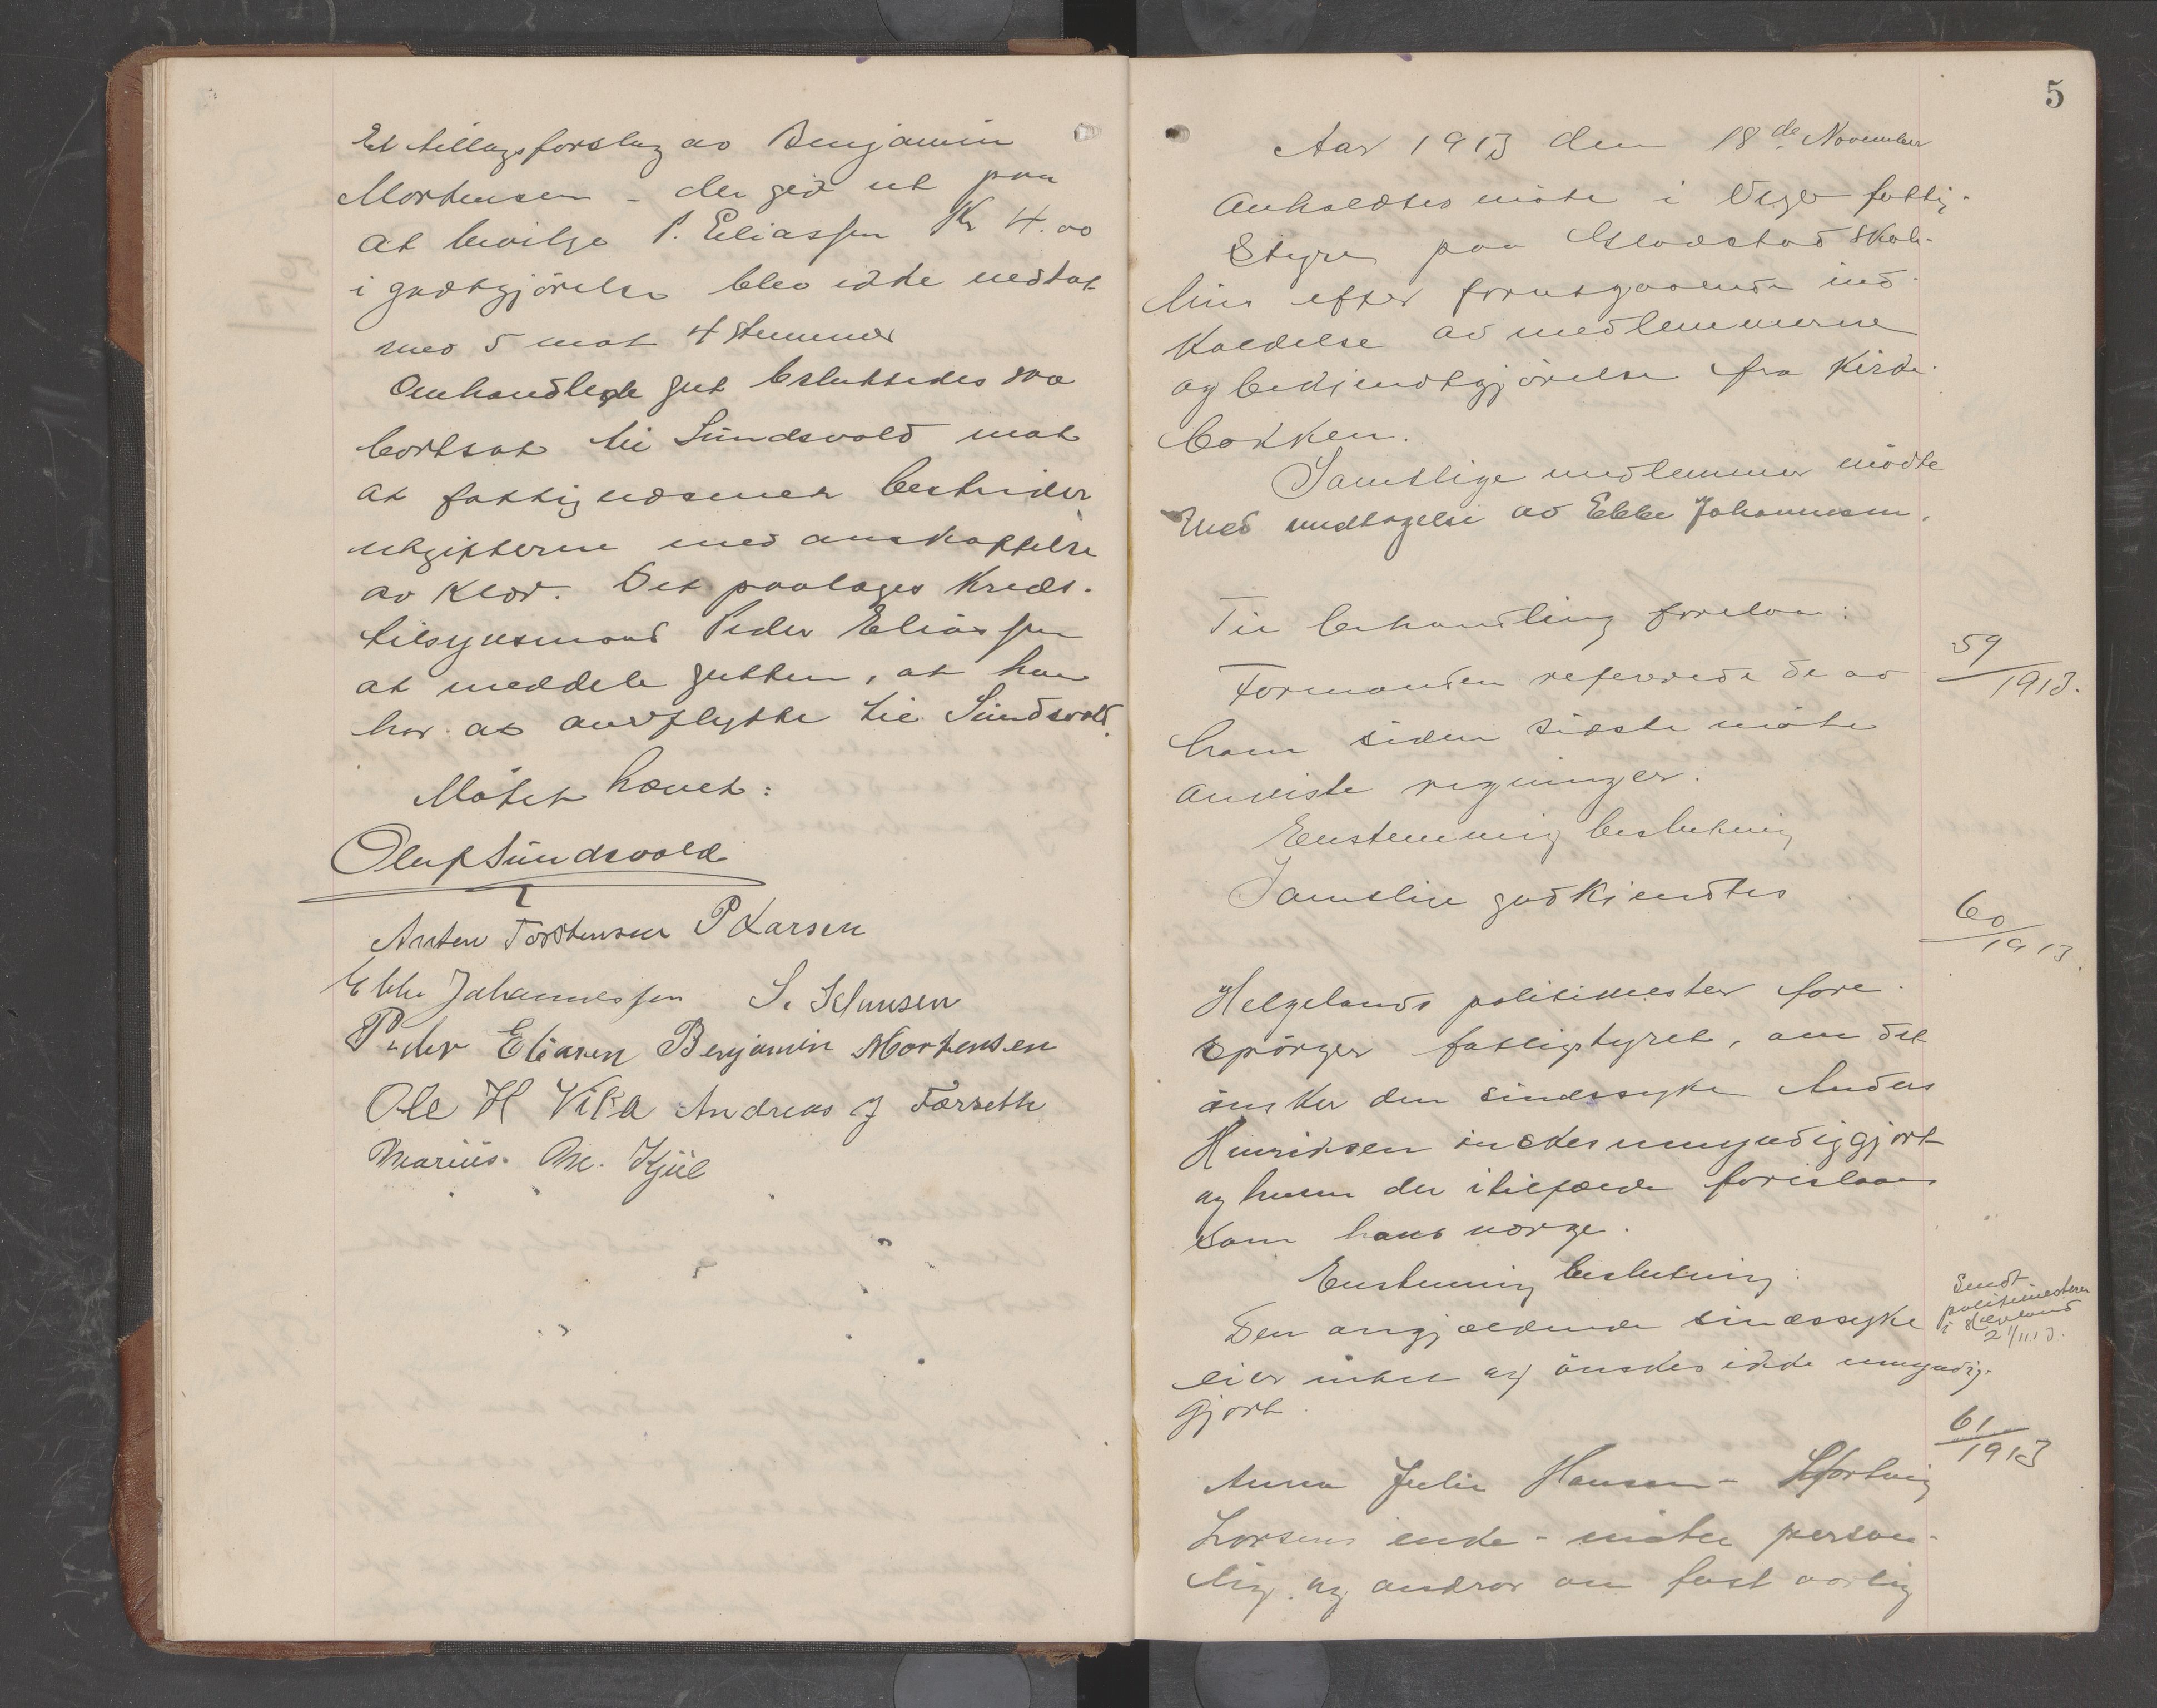 Et tillægsforslag av Benjamin
Mortensen – der gik ut paa
at bevilge P. Eliassen Kr 4.00
i godtgjörelse blev ikke vedtat
med 5 mot 4 stemmer
Omhandlede gut besluttedes saa
bortsat til Sundsvold mot
at fattigvæsenet bestrider
utgifterne med anskaffelse
av klær. Det paalæges Kreds-
tilsynsmand Peder Eliassen
at meddele gutten, at han
har at avflytte til Sundsvold.
Mötet hævet:
Oluf Sundsvold
Anton Torstensen P Larsen
Ebbe Johannessen S. Schmsen
Peder Eliasen Benjamin Mortensen
Ole H Vika Andreas J Færseth
Marius M. Kjul
5
Aar 1913 den 18de November
Avholdtes möte i Vega fattig-
styre paa Gladstad skole-
hus efter forutgaaende ind-
kaldelse av medlemmerne
og bekjendtgjörelse fra Kirke-
bakken.
Samtlige medlemmer mödte
med undtagelse av Ebbe Johannesen.
Til behandling forelaa:
59/1913.
Formanden refererede de av
ham siden sidste möte
anviste regninger.
Enstemmig beslutning
Samtlige godkjendtes
60/1913.
Helgelands politimester fore-
spörger fattigstyret, om det
önsker den sindssyke Anders
Henriksen umyndiggjort
og hvem der i tilfælde foreslaaes
som hans værge.
Enstemmig beslutning:
Den angjældende sindssyke
eier intet og önskes ikke umyndig-
gjort.
Sendt
politimesteren
i Helgeland
21/11 13.
61/1913
Anna Julie Hansen – Hartvig
Larsens enke – möter person-
lig og andrar om fast aarlig